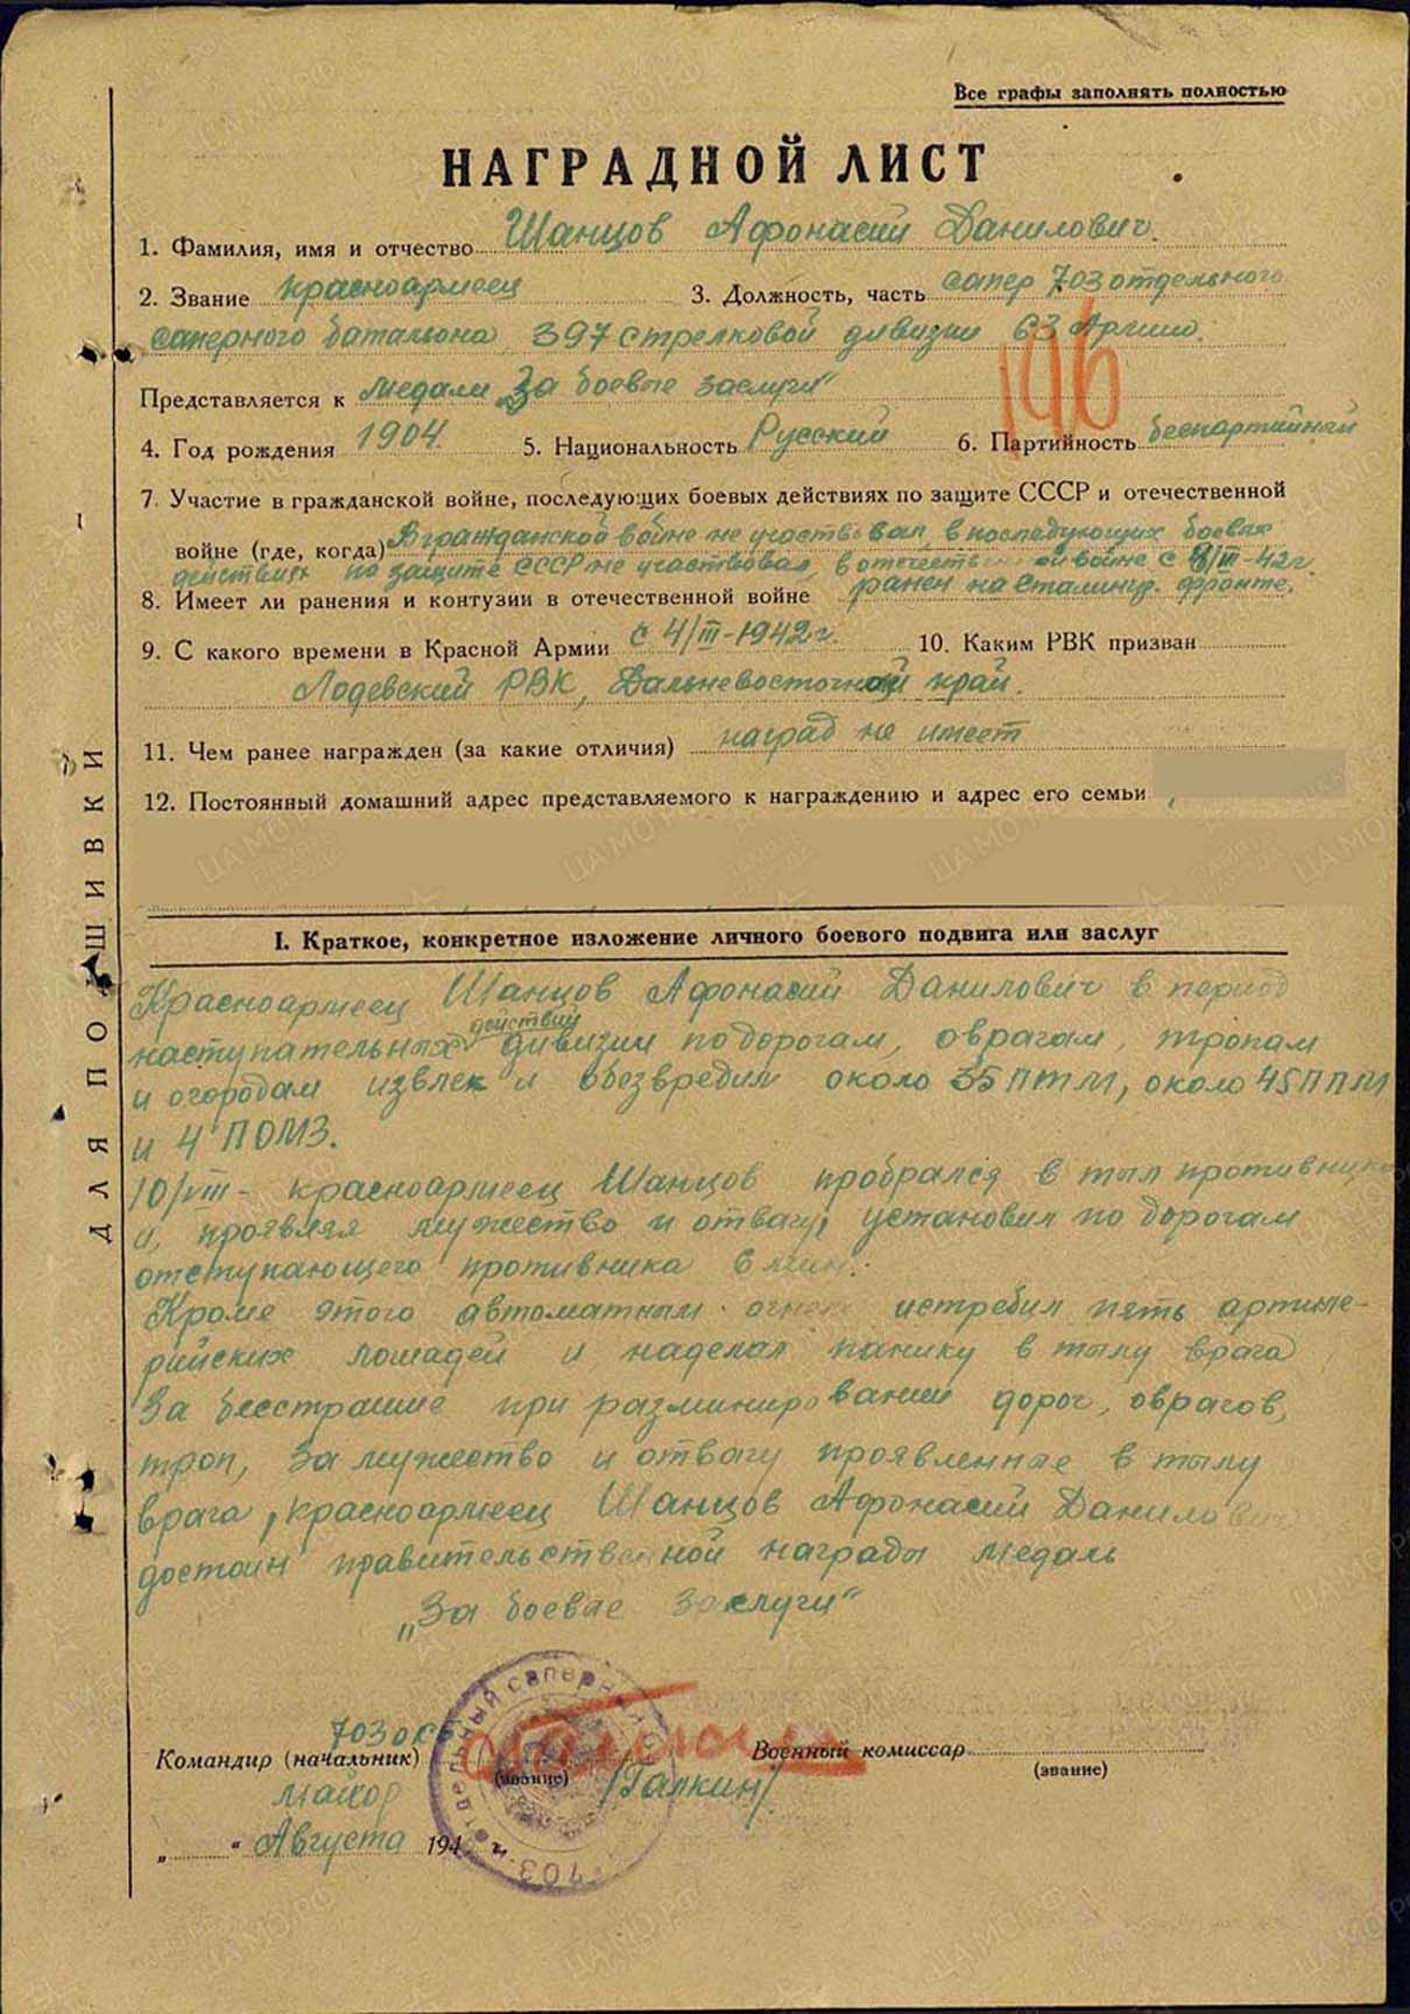 Все графы заполнять полностью
НАГРАДНОЙ ЛИСТ
1. Фамилия, имя и отчество Шанцов Афонасий Данилович.
2. Звание красноармеец 3. Должность, часть сапер 703 отдельного
саперного батальона 397 стрелковой дивизии 63 Армии.
196
Представляется к медали „За боевые заслуги“
4. Год рождения 1904. 5. Национальность Русский 6. Партийность беспартийный
7. Участие в гражданской войне, последующих боевых действиях по защите СССР и отечественной
войне (где, когда) В гражданской войне не участвовал, в последующих боевых
действиях по защите СССР не участвовал, в отечеств ой войне с /III-42г.
8. Имеет ли ранения и контузии в отечественной войне ранен на Сталингр. фронте.
9. С какого времени в Красной Армии с 4/III-1942г. 10. Каким РВК призван
РВК, Дальневосточной край.
11. Чем ранее награжден (за какие отличия) наград не имеет
12. Постоянный домашний адрес представляемого к награждению и адрес его семьи
I. Краткое, конкретное изложение личного боевого подвига или заслуг
Красноармеец Шанцов Афонасий Данилович в период
действий
наступательных дивизии по дорогам, оврагам, тропам
и огородам извлек и обезвредил около 35 ПТМ, около 45 ППМ
и 4 ПОМЗ.
10/VIII- красноармеец Шанцов пробрался в тыл противника
и, проявляя мужество и отвагу, установил по дорогам
отступающего противника 6 мин.
Кроме этого автоматным огнем истребил пять артиле-
рийских лошадей и наделал панику в тылу врага
За бесстрашие при разминировании дорог, оврагов,
троп, за мужество и отвагу проявленные в тылу
врага, красноармеец Шанцов Афонасий Данилович
достоин правительственной награды медаль
„За боевые заслуги“
703 осб
Командир (начальник) (звание) Военный комиссар (звание)
майор /Галкин/
„ “ Августа 194 г.
отдельный саперный
703
ДЛЯ ПОДШИВКИ